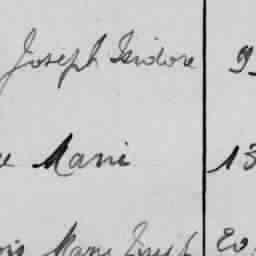 Joseph Isidore 9
Marie 13
Marie Joseph 20